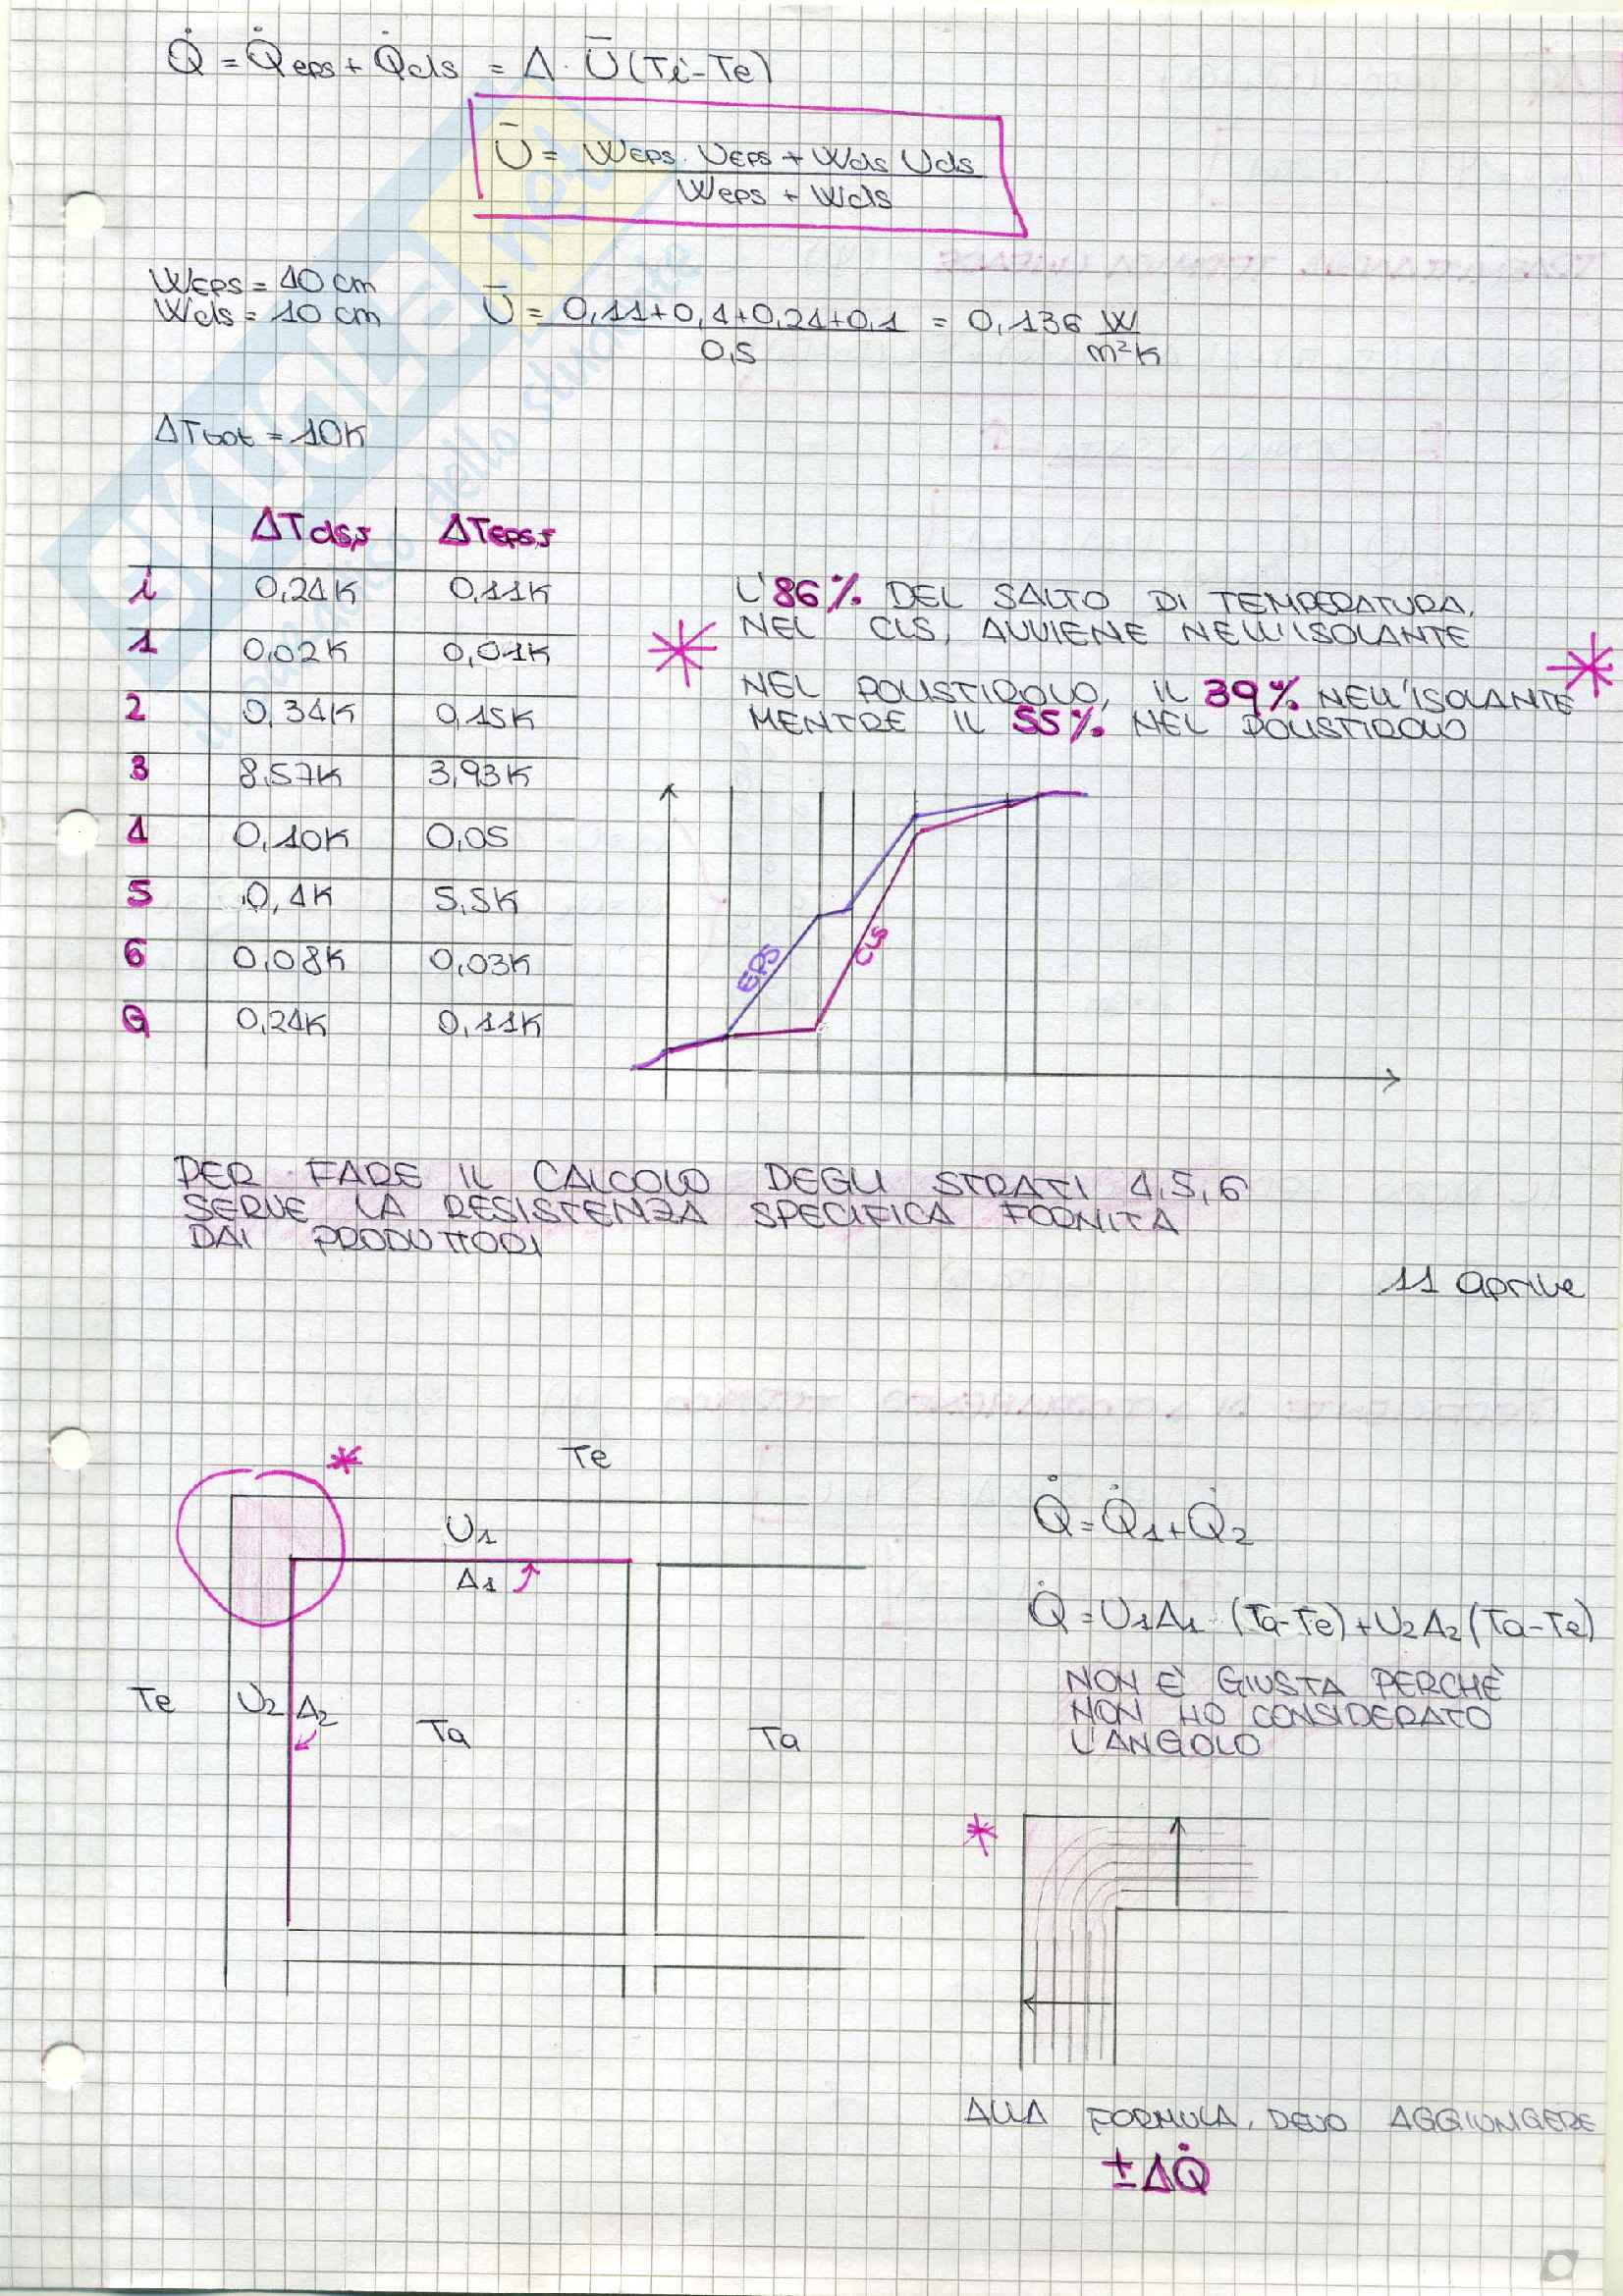 Q̇ = Q̇eps + Q̇cls = A · Ū (Ti-Te)
Ū = Weps · Ueps + Wcls Ucls
Weps + Wcls
Weps = 40 cm
Wcls = 10 cm
Ū = 0,11+0,4+0,24+0,1 = 0,136 W
0,5 m²K
ΔTtot = 10K
ΔTcls,s ΔTeps,s
i 0,24K 0,11K
1 0,02K 0,01K
2 0,34K 0,15K
3 8,57K 3,93K
4 0,10K 0,05
5 0,4K 5,5K
6 0,08K 0,03K
0,24K 0,11K
L'86% DEL SALTO DI TEMPERATURA,
NEL CLS, AVVIENE NELL'ISOLANTE
NEL POLISTIROLO, IL 39% NELL'ISOLANTE
MENTRE IL 55% NEL POLISTIROLO
EPS
CLS
PER FARE IL CALCOLO DEGLI STRATI 4,5,6
SERVE LA RESISTENZA SPECIFICA FORNITA
DAI PRODUTTORI
11 aprile
* Te
U1
A1
Te U2 A2 Ta Ta
Q̇ = Q̇1 + Q̇2
Q̇ = U1A1 (Ta-Te) + U2A2 (Ta-Te)
NON È GIUSTA PERCHÈ
NON HO CONSIDERATO
L'ANGOLO
*
ALLA FORMULA, DEVO AGGIUNGERE
± ΔQ̇
SKUOLA.net